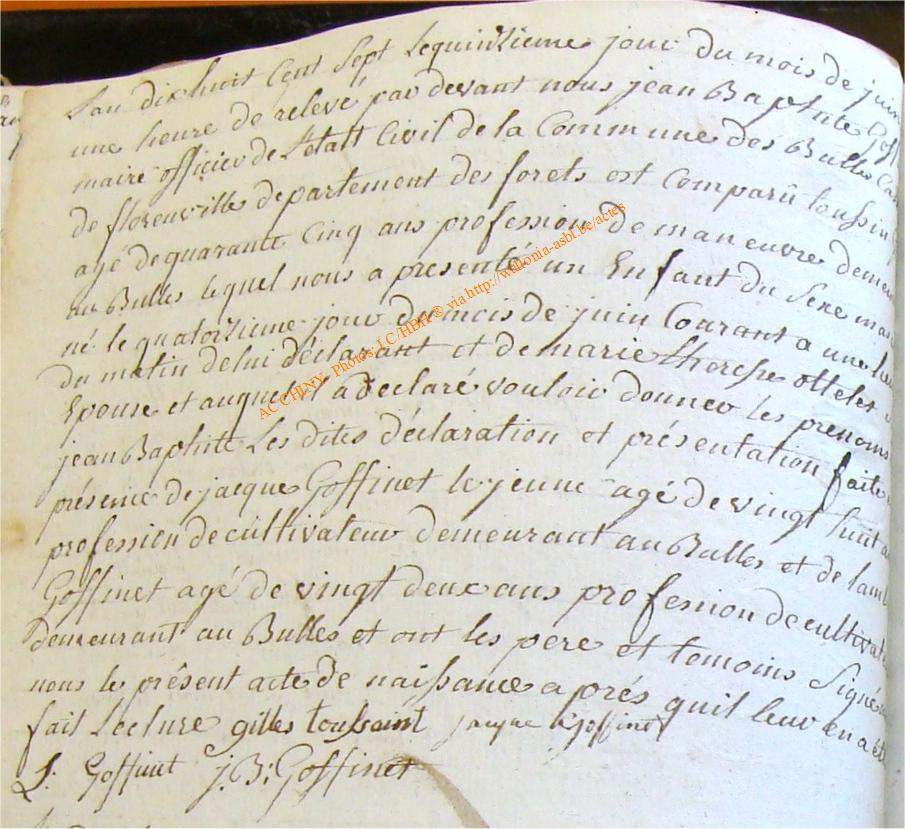 L'an dix huit Cent Sept Lequinzieme jour du mois de juin
une heure de relevé par devant nous jean Baptiste Goff
maire officier de L'etatt Civil de la Commune des Bulles Can
de florenville departement des forets est Comparû toussin
agé dequarante Cinq ans profession de maneuvre demeu
au Bulles lequel nous a presenté un Enfant du Sexe mas
né le quatorzieme jour du mois de juin Courant a une heu
du matin delui déclarant et de marie therese ottelet
Epouse et auquel il a declaré vouloir donner les prenoms
jean Baptiste Les dites déclaration et présentation faite
présence de jacque Goffinet le jeune agé de vingt huit a
profession de cultivateur demeurant au Bulles et de lam
Goffinet agé de vingt deux ans profession de cultivate
demeurant au Bulles et ont les pere et temoins Signé
nous le présent acte de naissance aprés quil leur en a été
fait Lecture gilles toussaint jacque Goffinet
L: Goffinet J:B: Goffinet
AC CHINY - Photos: LC/HBH ® via http://wallonia-asbl.be/actes